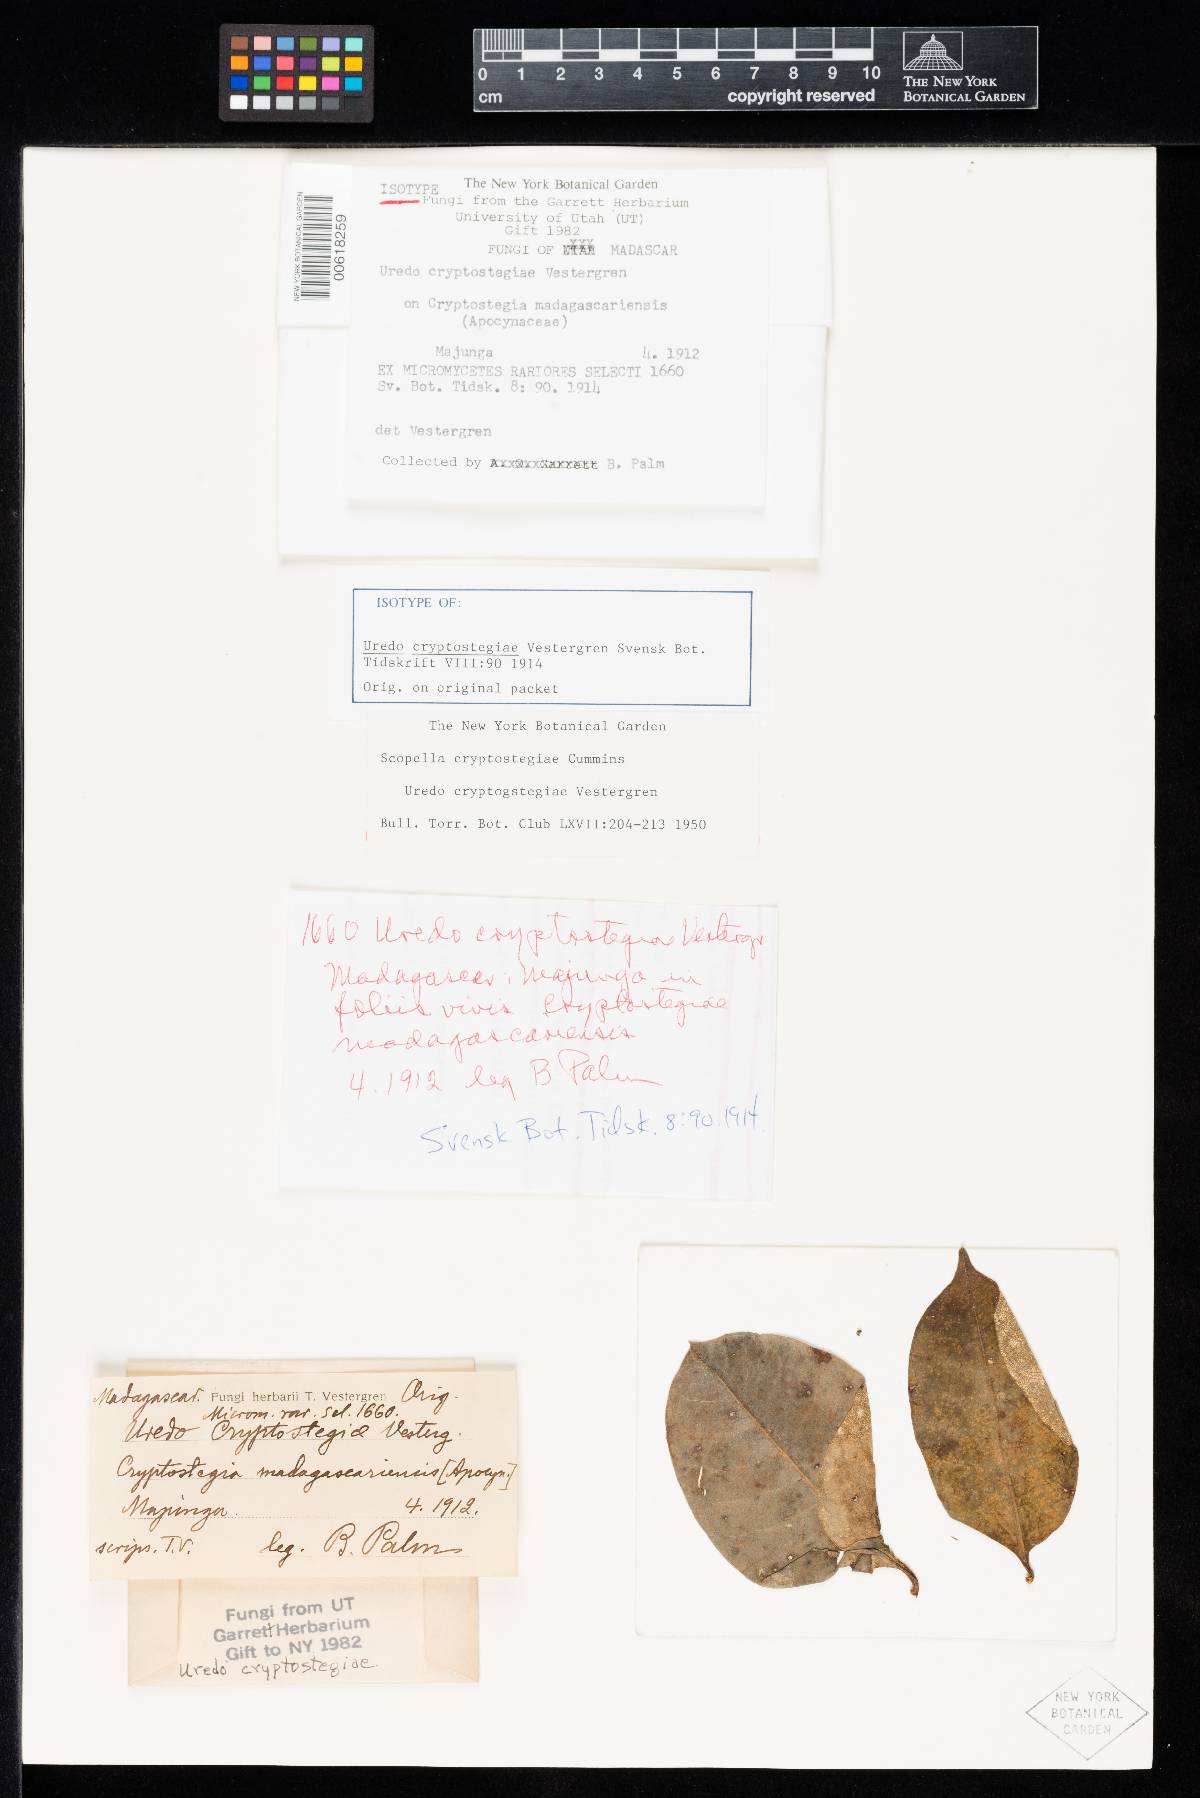 0 1 2 3 4 5 6 7 8 9 10
cm
copyright reserved
THE NEW YORK
BOTANICAL GARDEN
NEW YORK BOTANICAL GARDEN
00618259
ISOTYPE The New York Botanical Garden
Fungi from the Garrett Herbarium
University of Utah (UT)
Gift 1982
FUNGI OF MADASCAR
Uredo cryptostegiae Vestergren
on Cryptostegia madagascariensis
(Apocynaceae)
Majunga 4. 1912
EX MICROMYCETES RARIORES SELECTI 1660
Sv. Bot. Tidsk. 8: 90. 1914
det Vestergren
Collected by B. Palm
ISOTYPE OF:
Uredo cryptostegiae Vestergren Svensk Bot.
Tidskrift VIII:90 1914
Orig. on original packet
The New York Botanical Garden
Scopella cryptostegiae Cummins
Uredo cryptogstegiae Vestergren
Bull. Torr. Bot. Club LXVII:204-213 1950
1660 Uredo cryptostegia Vestergr
Madagascar: Majunga in
foliis vivis Cryptostegiae
madagascariensis
4.1912 leg B Palm
Svensk Bot. Tidsk. 8:90.1914.
Madagascar. Fungi herbarii T. Vestergren Orig.
Microm. rar. Sel. 1660.
Uredo Cryptostegiæ Vesterg.
Cryptostegia madagascariensis [Apocyn.]
Majunga. 4. 1912.
scrips. T.V. leg. B. Palm
Fungi from UT
Garrett Herbarium
Gift to NY 1982
Uredo cryptostegiae
NEW YORK
BOTANICAL
GARDEN